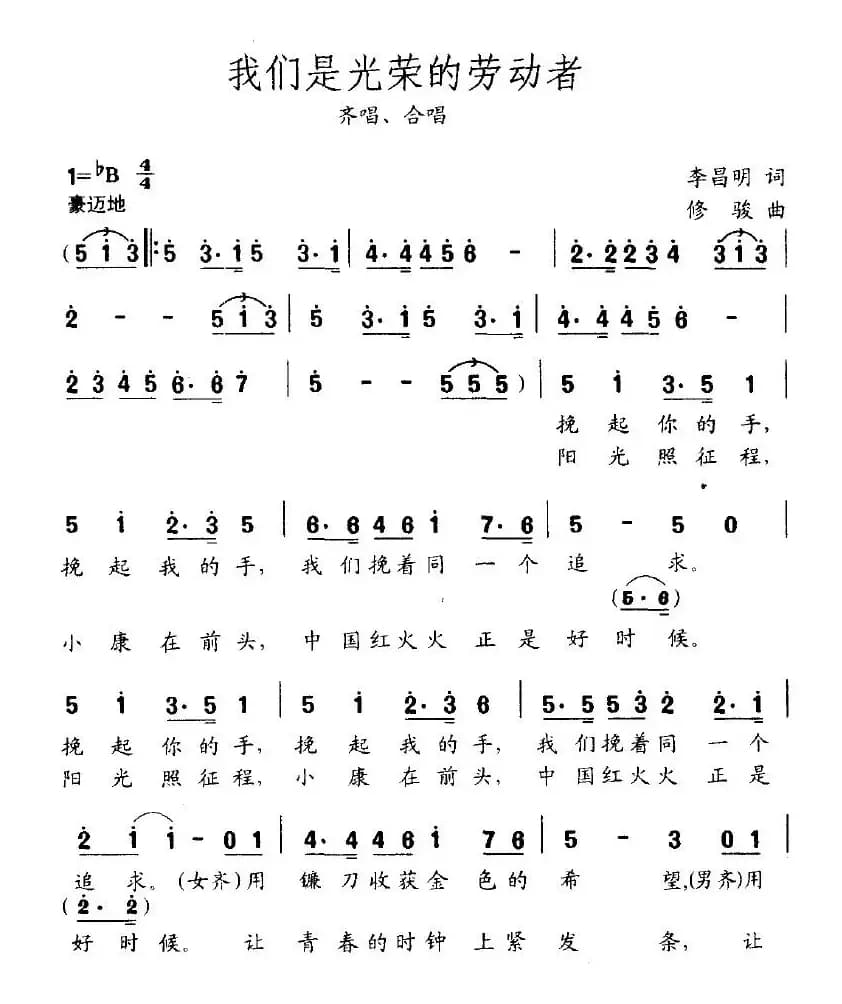 我们是光荣的劳动者
齐唱、合唱
1=♭B 4/4
李昌明 词
豪迈地
修 骏 曲
(5 i 3 ‖: 5 3· i 5 3· i | 4· 4 4 5 6 - | 2· 2 2 3 4 3 i 3 |
2 - - 5 i 3 | 5 3· i 5 3· i | 4· 4 4 5 6 - |
2 3 4 5 6· 6 7 | 5 - - 5 5 5 ) | 5 i 3· 5 1 |
挽 起 你 的 手,
阳 光 照 征 程,
5 i 2· 3 5 | 6· 6 4 6 i 7· 6 | 5 - 5 0 |
挽 起 我 的 手, 我 们 挽 着 同 一 个 追 求。
(5· 6)
小 康 在 前 头, 中 国 红 火 火 正 是 好 时 候。
5 i 3· 5 1 | 5 i 2· 3 6 | 5· 5 5 3 2 2· i |
挽 起 你 的 手, 挽 起 我 的 手, 我 们 挽 着 同 一 个
阳 光 照 征 程, 小 康 在 前 头, 中 国 红 火 火 正 是
2 i i - 0 1 | 4· 4 4 6 i 7 6 | 5 - 3 0 1 |
追 求。 (女齐) 用 镰 刀 收 获 金 色 的 希 望, (男齐) 用
(2· 2)
好 时 候。 让 青 春 的 时 钟 上 紧 发 条, 让